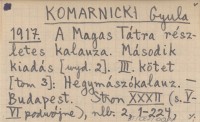 KOMARNICKI Gyula
1917. A Magas Tátra rész-
letes kalauza. Második
kiadás [wyd. 2]. III. kötet
[tom 3]: Hegymászókalauz. —
Budapest. Stron XXXII (s. V-
VI podwójne), nlb. 2, 1-224